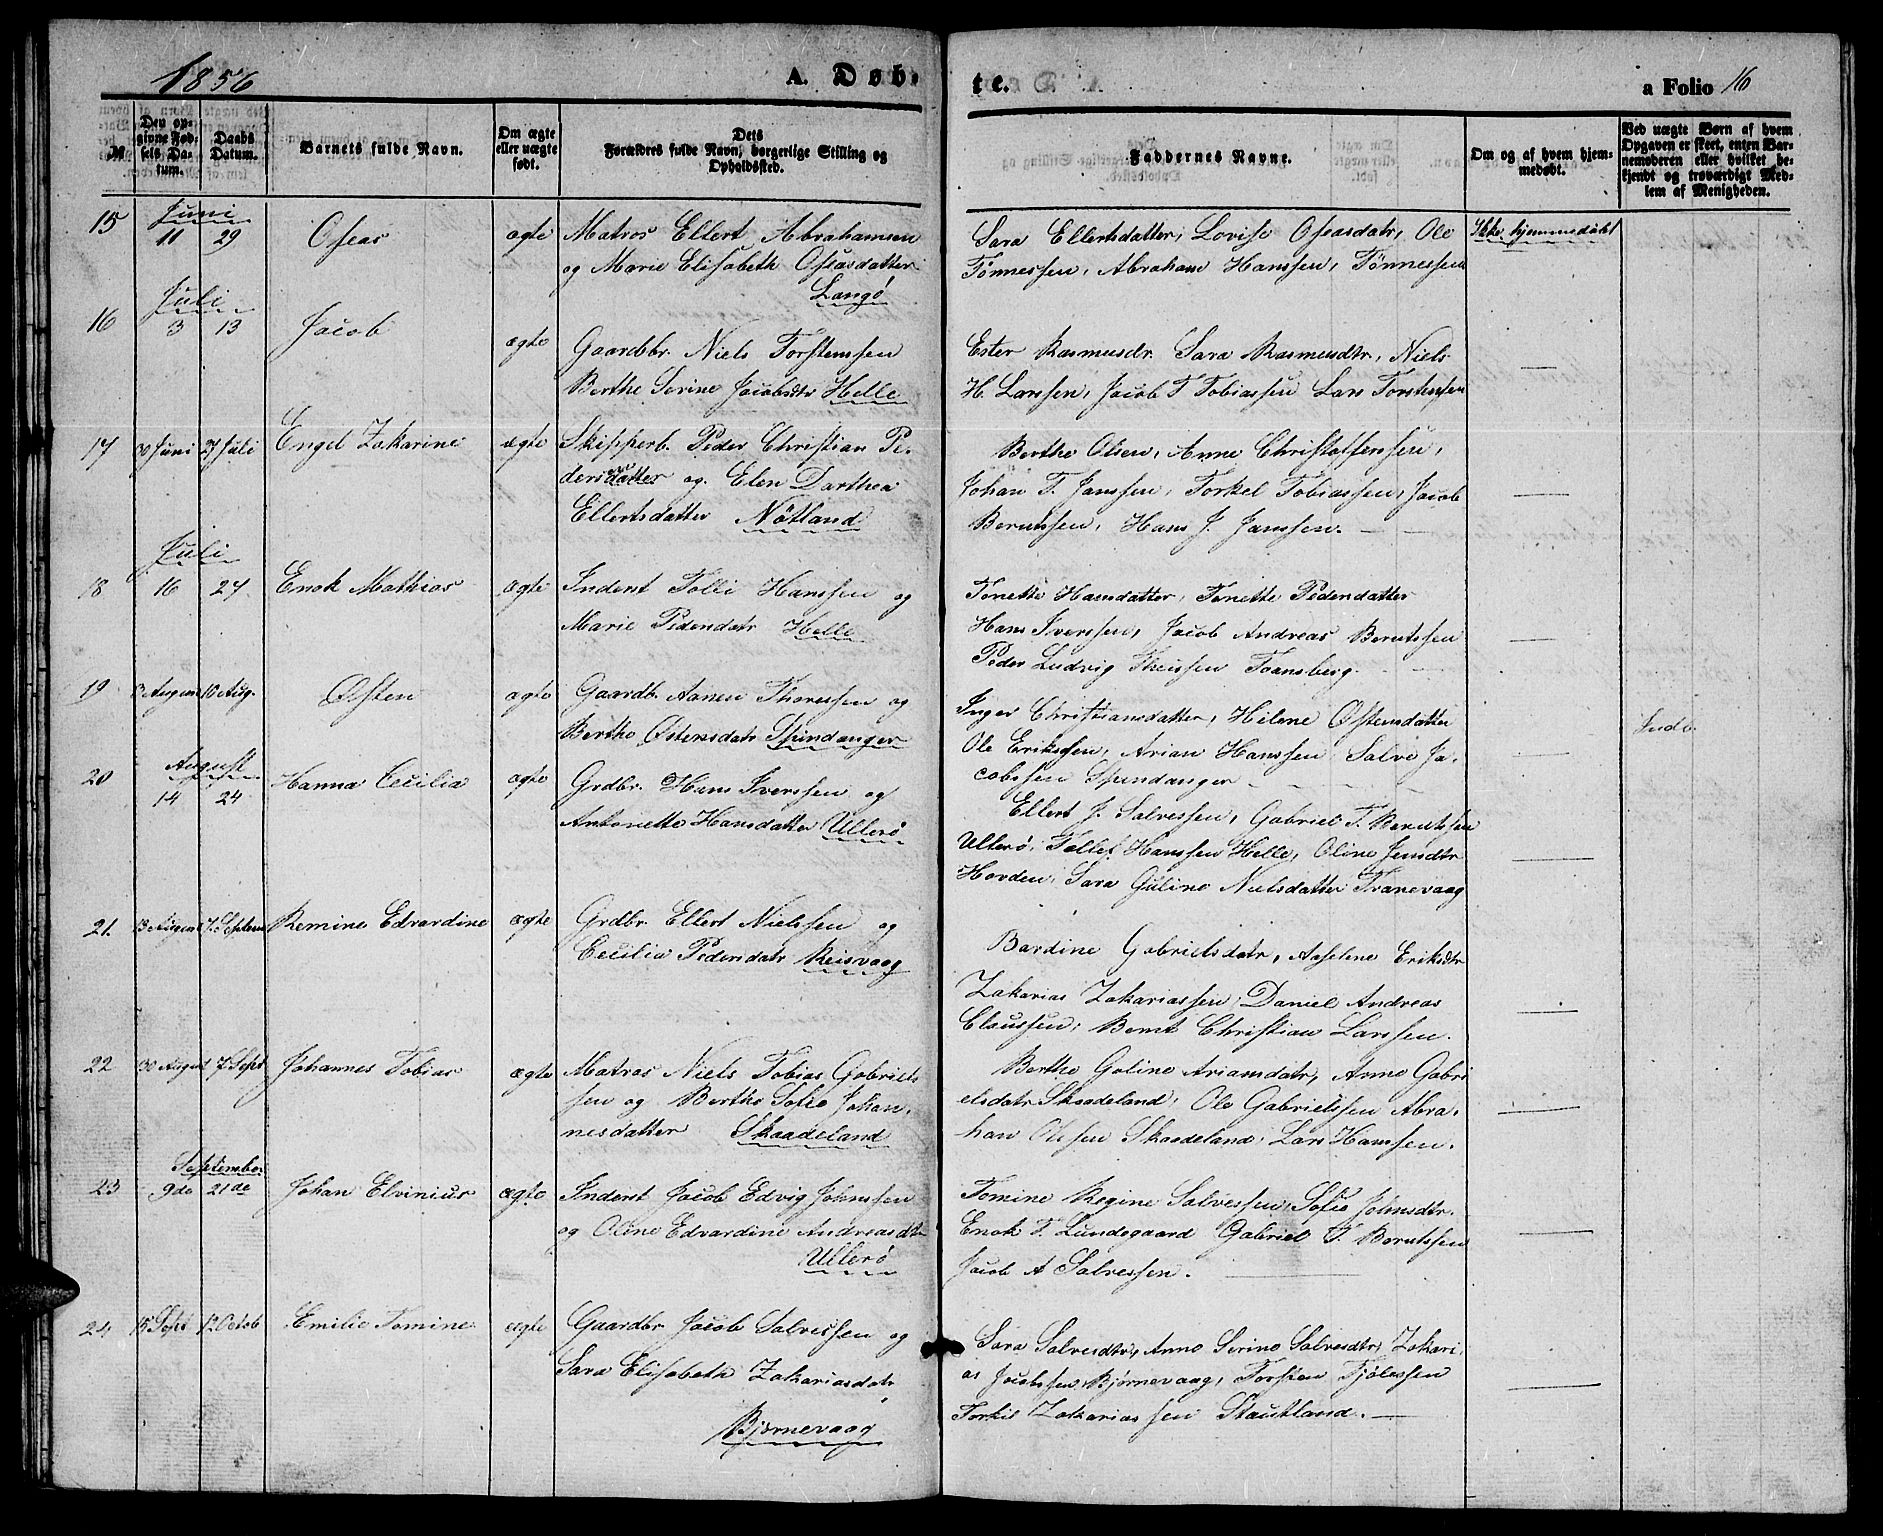 1856
A. Døb-
te.
a Folio 16
№
Den op-
givne Fød-
sels Da-
tum.
Daabs
Datum.
Barnets fulde Navn.
Om ægte
eller uægte
født.
Dets
Forældres fulde Navn, borgerlige Stilling og
Opholdssted.
Faddernes Navne.
Om og af hvem hjem-
medøbt.
Ved uægte Børn af hvem
Opgaven er skeet, enten Bar-
nemoderen eller hvilket be-
kjendt og troværdigt Med-
lem af Menigheden.
15
Juni
11 29
Oseas
ægte
Matros Ellert Abrahamsen
og Marie Elisabeth Oseasdatter
Langø
Sara Ellertsdatter, Lovise Oseasdatr, Ole
Tønnessen, Abraham Hanssen, Tønnessen
Ikke hjemmedøbt
16
Juli
3 13
Jacob
ægte
Gaardbr. Niels Torstenssen
Berthe Serine Jacobsdtr Helle
Ester Rasmusdr. Sara Rasmusdtr, Niels
H. Larssen, Jacob T Tobiassen Lars Torstenssen
17
30 Juni 27 Juli
Engel Zakarine
ægte
Skipperb. Peder Christian Pe-
dersdatter og Elen Darthea
Ellertsdatter Nøtland
Berthe Olsen, Anne Christoffersen,
Johan T. Janssen, Torkel Tobiassen, Jacob
Berntssen, Hans J. Janssen.
18
Juli
16 27
Enok Mathias
ægte
Inderst Tolli Hanssen og
Marie Pedersdatr Helle
Tonette Hansdatter, Tonette Pedersdatter
Hans Iverssen, Jacob Andreas Berntssen
Peder Ludvig Theissen Toansberg.
19
3 August 10 Aug.
Østen
ægte
Gaardb. Aanen Thoressen og
Berthe Østensdatr Spindanger
Inger Christiansdatter, Helene Østensdatter
Ole Erikssen, Arian Hanssen, Salve Ja-
cobssen Spindanger
Indb.
20
August
14 24
Hanna Cecilia
ægte
Grdbr. Hans Iverssen og
Antonette Hansdatter Ullerø
Ellert J. Salvessen, Gabriel T. Berntssen
Ullerø, Tollef Hanssen Helle, Oline Jensdtr
Horden, Sara Guline Nielsdatter Tranevaag
21.
13 August 7 Septem
Remine Edvardine
ægte
Grdbr. Ellert Nielssen og
Cecilia Pedersdatr Reisvaag
Bardine Gabrielsdatr, Aaselene Eriksdtr
Zakarias Zakariassen, Daniel Andreas
Claussen, Bernt Christian Larssen.
22
30 August 7 Sept
Johannes Tobias
ægte
Matros Niels Tobias Gabriels
sen og Berthe Sofie Johan-
nesdatter Skaadeland
Berthe Goline Ariansdatr, Anne Gabri
elsdatr Skaadeland, Ole Gabrielssen Abra-
ham Olssen Skaadeland, Lars Hanssen.
23
September
9de 21de
Johan Elvinius
ægte
Inderst Jacob Edvig Johnssen
og Oline Edvardine Andreasdtr
Ullerø
Tomine Regine Salvessen, Sofie Johnsdtr.
Enok T. Lundegaard Gabriel T. Berntssen
Jacob A Salvessen.
24
15 Sept 12 Octob
Emilie Tomine
ægte
Gaardbr Jacob Salvessen og
Sara Elisabeth Zakariasdatr
Bjørnevaag
Sara Salvesdtr, Anne Serine Salvesdtr, Zakari-
as Jacobssen Bjørnevaag, Torsten Tjølessen
Torkil Zakariassen Stautland.